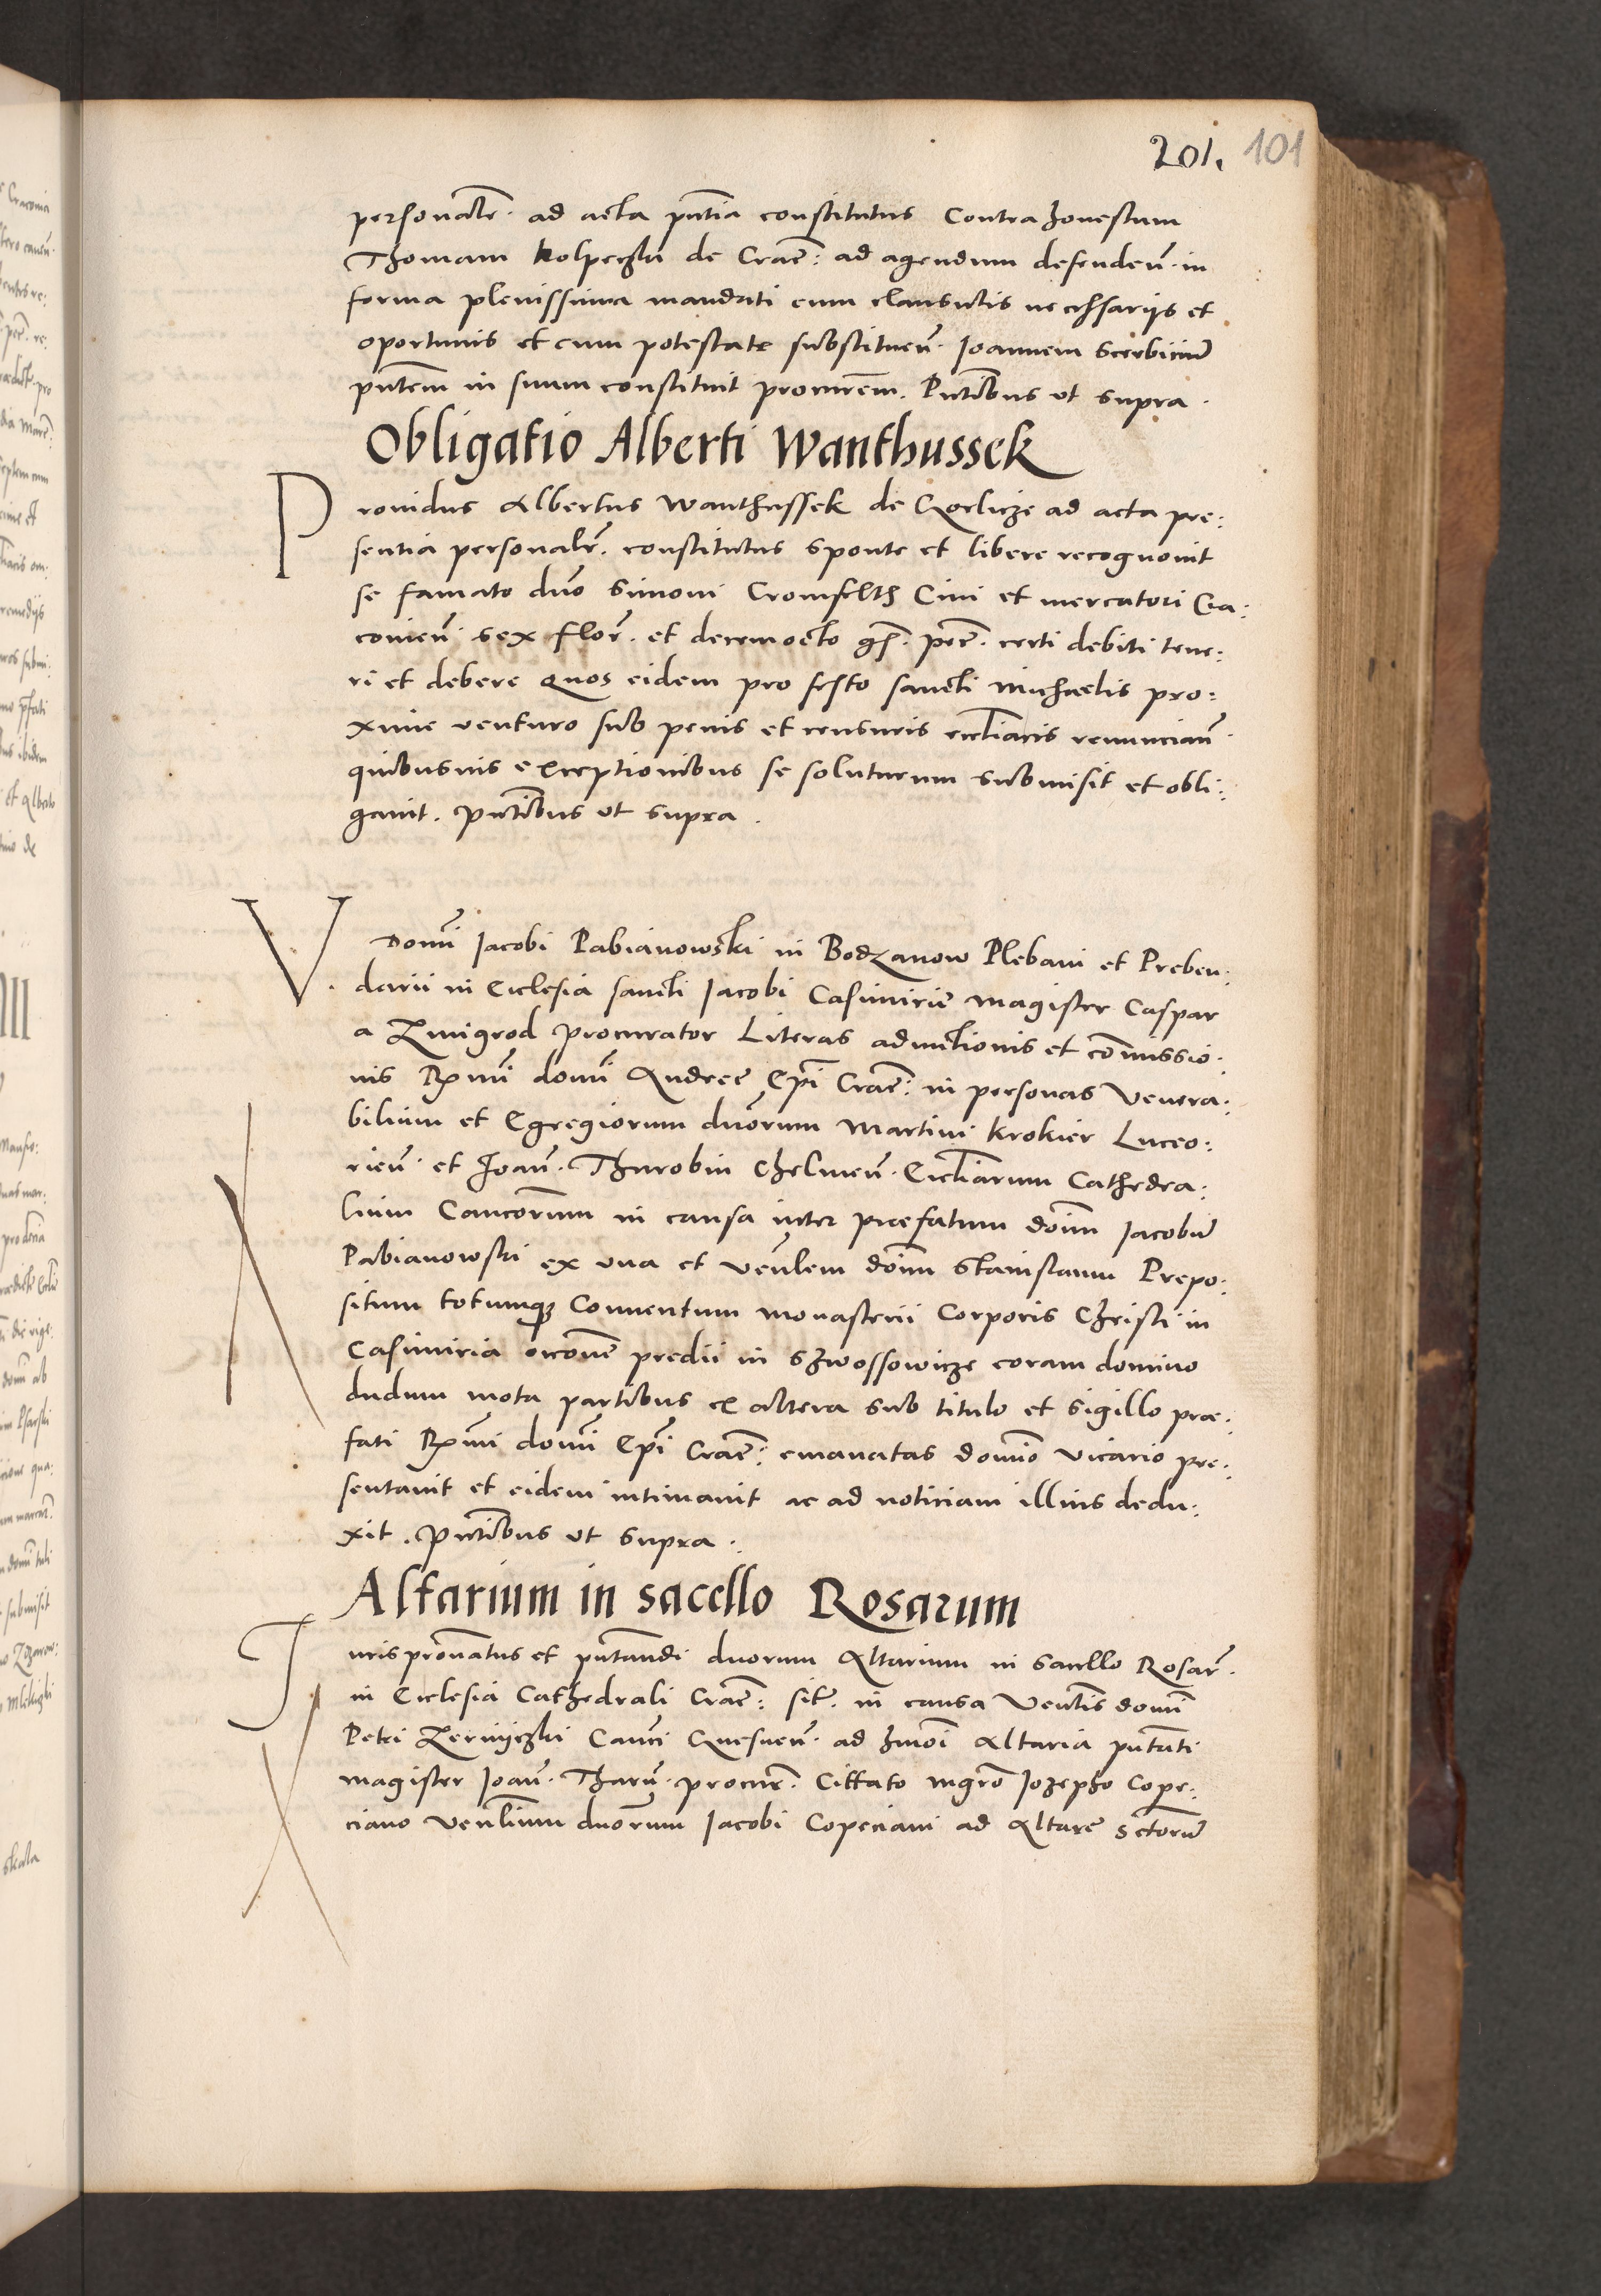 201. 101
personalr̃. ad acta pñtia constitutus Contra honestum
Thomam Kolpeczki de Crac̃: ad agendum defendeñ. in
forma plenissima mandati cum clausulis necessarijs et
oportunis et cum potestate substitueñ. Ioannem Scerbiciũ
pñtem in suum constituit procurem̃. Pñtibus ut supra.
Obligatio Alberti Wanthussek
Prouidus Albertus Wanthussek de Gorlicze ad acta pre:
sentia personalr̃. constitutus sponte et libere recognouit
se famato dño Simoni Cromfelth Ciui et mercatori Cra:
couieñ. sex flor̃. et decemocto gs̃. pec̃. certi debiti tene:
ri et debere Quos eidem pro festo sancti Michaelis pro:
xime venturo sub penis et censuris eccl̃iacis renunciañ
quibusuis exceptionibus se soluturum submisit et obli:
gauit. Pñtibus ut supra.
V. Domĩ Iacobi Pabianowski in Bodzanow Plebani et Preben:
darii in Ecclesia sancti Iacobi Casimirie magister Caspar
a Zmigrod procurator Literas aduoc̃tionis et com̃issio:
nis Rmĩ domĩ Andree Ep̃i Crac̃: in personas Venera:
bilium et Egregiorum dñorum Martini Krokier Luceo:
rieñ. et Ioañ. Thurobin Chelmeñ. Eccl̃iarum Cathedra:
lium Canco͂rum in causa inter præfatum doim̃ Iacobũ
Pabianowski ex vna et veñlem doim̃ Stanislaum Prepo:
situm totumqꝫ Conuentum monasterii Corporis Christi in
Casimiria occoñe predii in Szwossowicze coram domino
dudum mota partibus ex altera sub titulo et sigillo præ:
fati Rmĩ domĩ Ep̃i Crac̃: emanatas domĩo vicario pre:
sentauit et eidem intimauit ac ad noticiam illius dedu:
xit. Pñtibus ut supra.
Altarium in sacello Rosarum
Iuris pr̃onatus et pñtandi duorum Altarium in sacello Rosar̃.
in Ecclesia Cathedrali Crac̃: sit̃. in causa Veñlis domĩ
Petri Canc̃i Gnesneñ. ad hmoĩ Altaria pñtati
magister Ioañ. Thur̃. procur̃. Cittato mgr̃o Iozepho Cope:
ciano Veñlium dñorum Iacobi Copeciani ad Altare Sctorũ